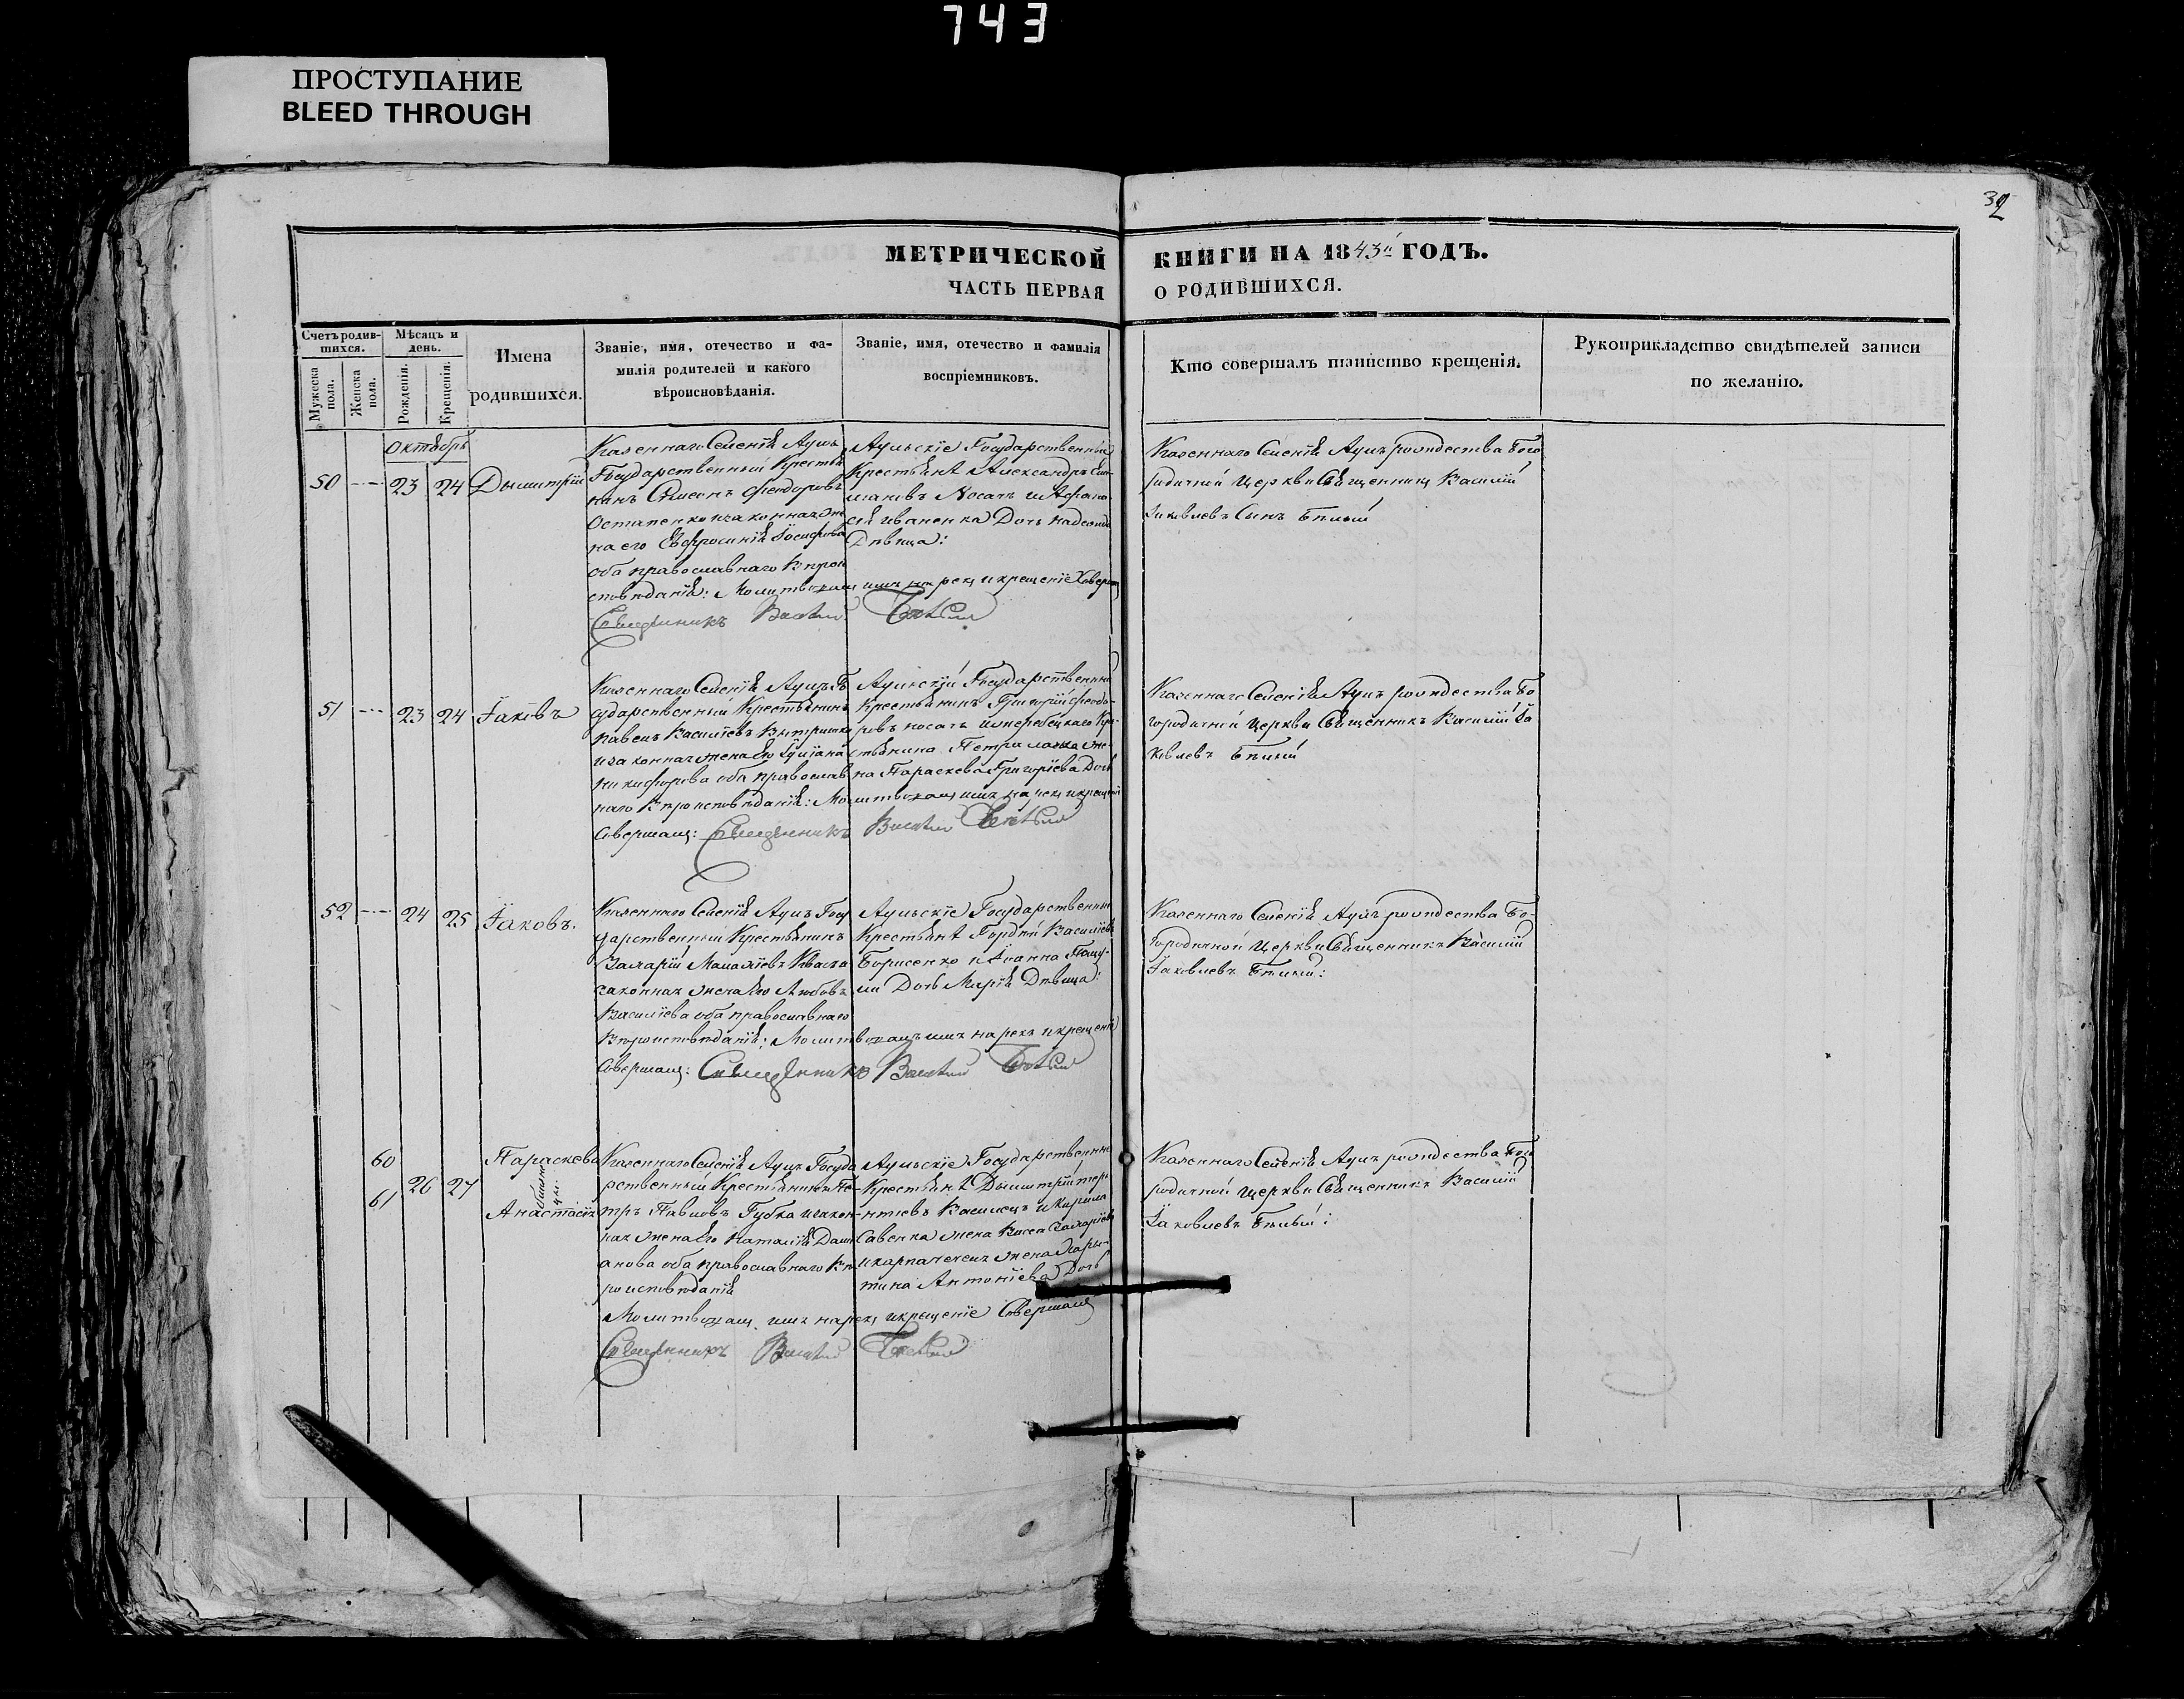 743
ПРОСТУПАНИЕ
BLEED THROUGH
32
МЕТРИЧЕСКОЙ КНИГИ НА 1843й ГОДЪ.
ЧАСТЬ ПЕРВАЯ О РОДИВШИХСЯ.
Счетъ родив-
шихся.
Мужеска
пола.
Женска
пола.
Мѣсяцъ и
день.
Рожденія.
Крещенія.
Имена
родившихся.
Званіе, имя, отечество и фа-
милія родителей и какого
вѣроисновѣданія.
Званіе, имя, отечество и фамилія
воспріемниковъ.
Кто совершалъ таинство крещенія.
Рукоприкладство свидѣтелей записи
по желанію.
Октябрь
50 23 24 Дымитрій
Казеннаго Селенія Ауль
Государственный Крестья
нинъ Симеонъ Феодоровъ
Остапенко изаконная же
на его Евфросинія Іосифова
оба православнаго Вѣрои
сповѣданія: Молитвовалъ имя нарекъ икрещеніе Совершалъ
Священникъ Василій Бѣлый
Аульскіе Государственныи
Крестьяне Александръ
Носачъ
Дѣвица:
Казеннаго Селенія Аулъ рождества Бого
родичной Церкви Священникъ Василій
Іаковлевъ Сынъ Бѣлый
51 23 24 Іаковъ
Казеннаго Селенія Аулъ Го
сударственный Крестьянинъ
Павелъ Василіевъ
изаконная жена Его Іуліана
Никифорова оба православ
наго Вѣроисповѣданія: Молитвовалъ имя нарекъ икрещеніе
Совершалъ: Священникъ Василій Бѣлый
Аульскій Государственный
Крестьянинъ Григорій Феодо-
ровъ носачъ
стьянина Петра же-
на Параскева Григоріева Дочь
Казеннаго Селенія Аулъ рождества Бо
городичной Церкви Священникъ Василій Іа
ковлевъ Бѣлый
52 24 25 Іаковъ.
Казеннаго Селенія Аулъ Госу
дарственный Крестьянинъ
законная жена Его Любовь
Василіева оба православнаго
Вѣроисповѣданія: Молитвовалъ имя нарекъ икрещеніе
Совершалъ: Священникъ Василій Бѣлый
Аульскіе Государственныи
Крестьяне Гордѣй Василіевъ
Борисенко и Іоанна
Дочь Марія Дѣвица:
Казеннаго Селенія Аулъ рождества Бо-
городичной Церкви Священникъ Василій
Іаковлевъ Бѣлый:
60
61
26 27
Параскева
Анастасія
Казеннаго Селенія Аулъ Госуда
рственный Крестьянинъ Пе-
тръ Павловъ Губка изакон-
ная жена Его Наталія Дами
анова оба православнаго Вѣ
роисповѣданія
Молитвовалъ имя нарекъ икрещеніе Совершалъ
Священникъ Василій Бѣлый
Аульскіе Государственныи
Крестьяне Дымитрій
Василецъ и Кирила
Савенка жена
жена
Антоніева Дочь
Казеннаго Селенія Аулъ рождества Бого
родичной Церкви Священникъ Василій
Іаковлевъ Бѣлый: